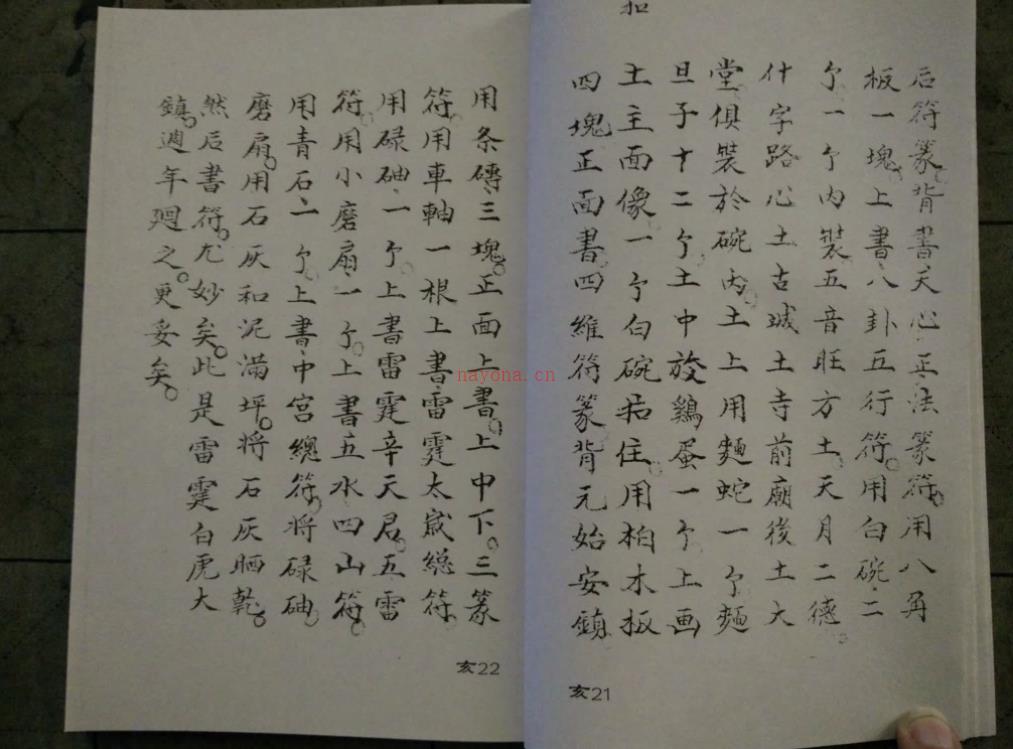 后符篆背書天心正法篆符用八角
板一塊上書八卦五行符用白碗二
个一个内裝五音旺方土天月二德
什字路心土古城土寺前廟後土大
堂俱裝於碗内土上用麵蛇一个麵
旦子十二个土中放鷄蛋一个上画
土主面像一个白碗后住用柏木板
四塊正面書四維符篆背元始安鎮
亥21
用条磚三塊正面上書上中下三篆
符用車軸一根上書雷霆太歲總符
用碌砷一个上書雷霆辛天君五雷
符用小磨扇一个上書五水四山符
用青石一个上書中宫總符将碌砷
磨扇用石灰和泥满坪将石灰晒乾
然后書符尤妙矣此是雷霆白虎大
鎮週年廻之更妥矣
亥22
nayona.cn